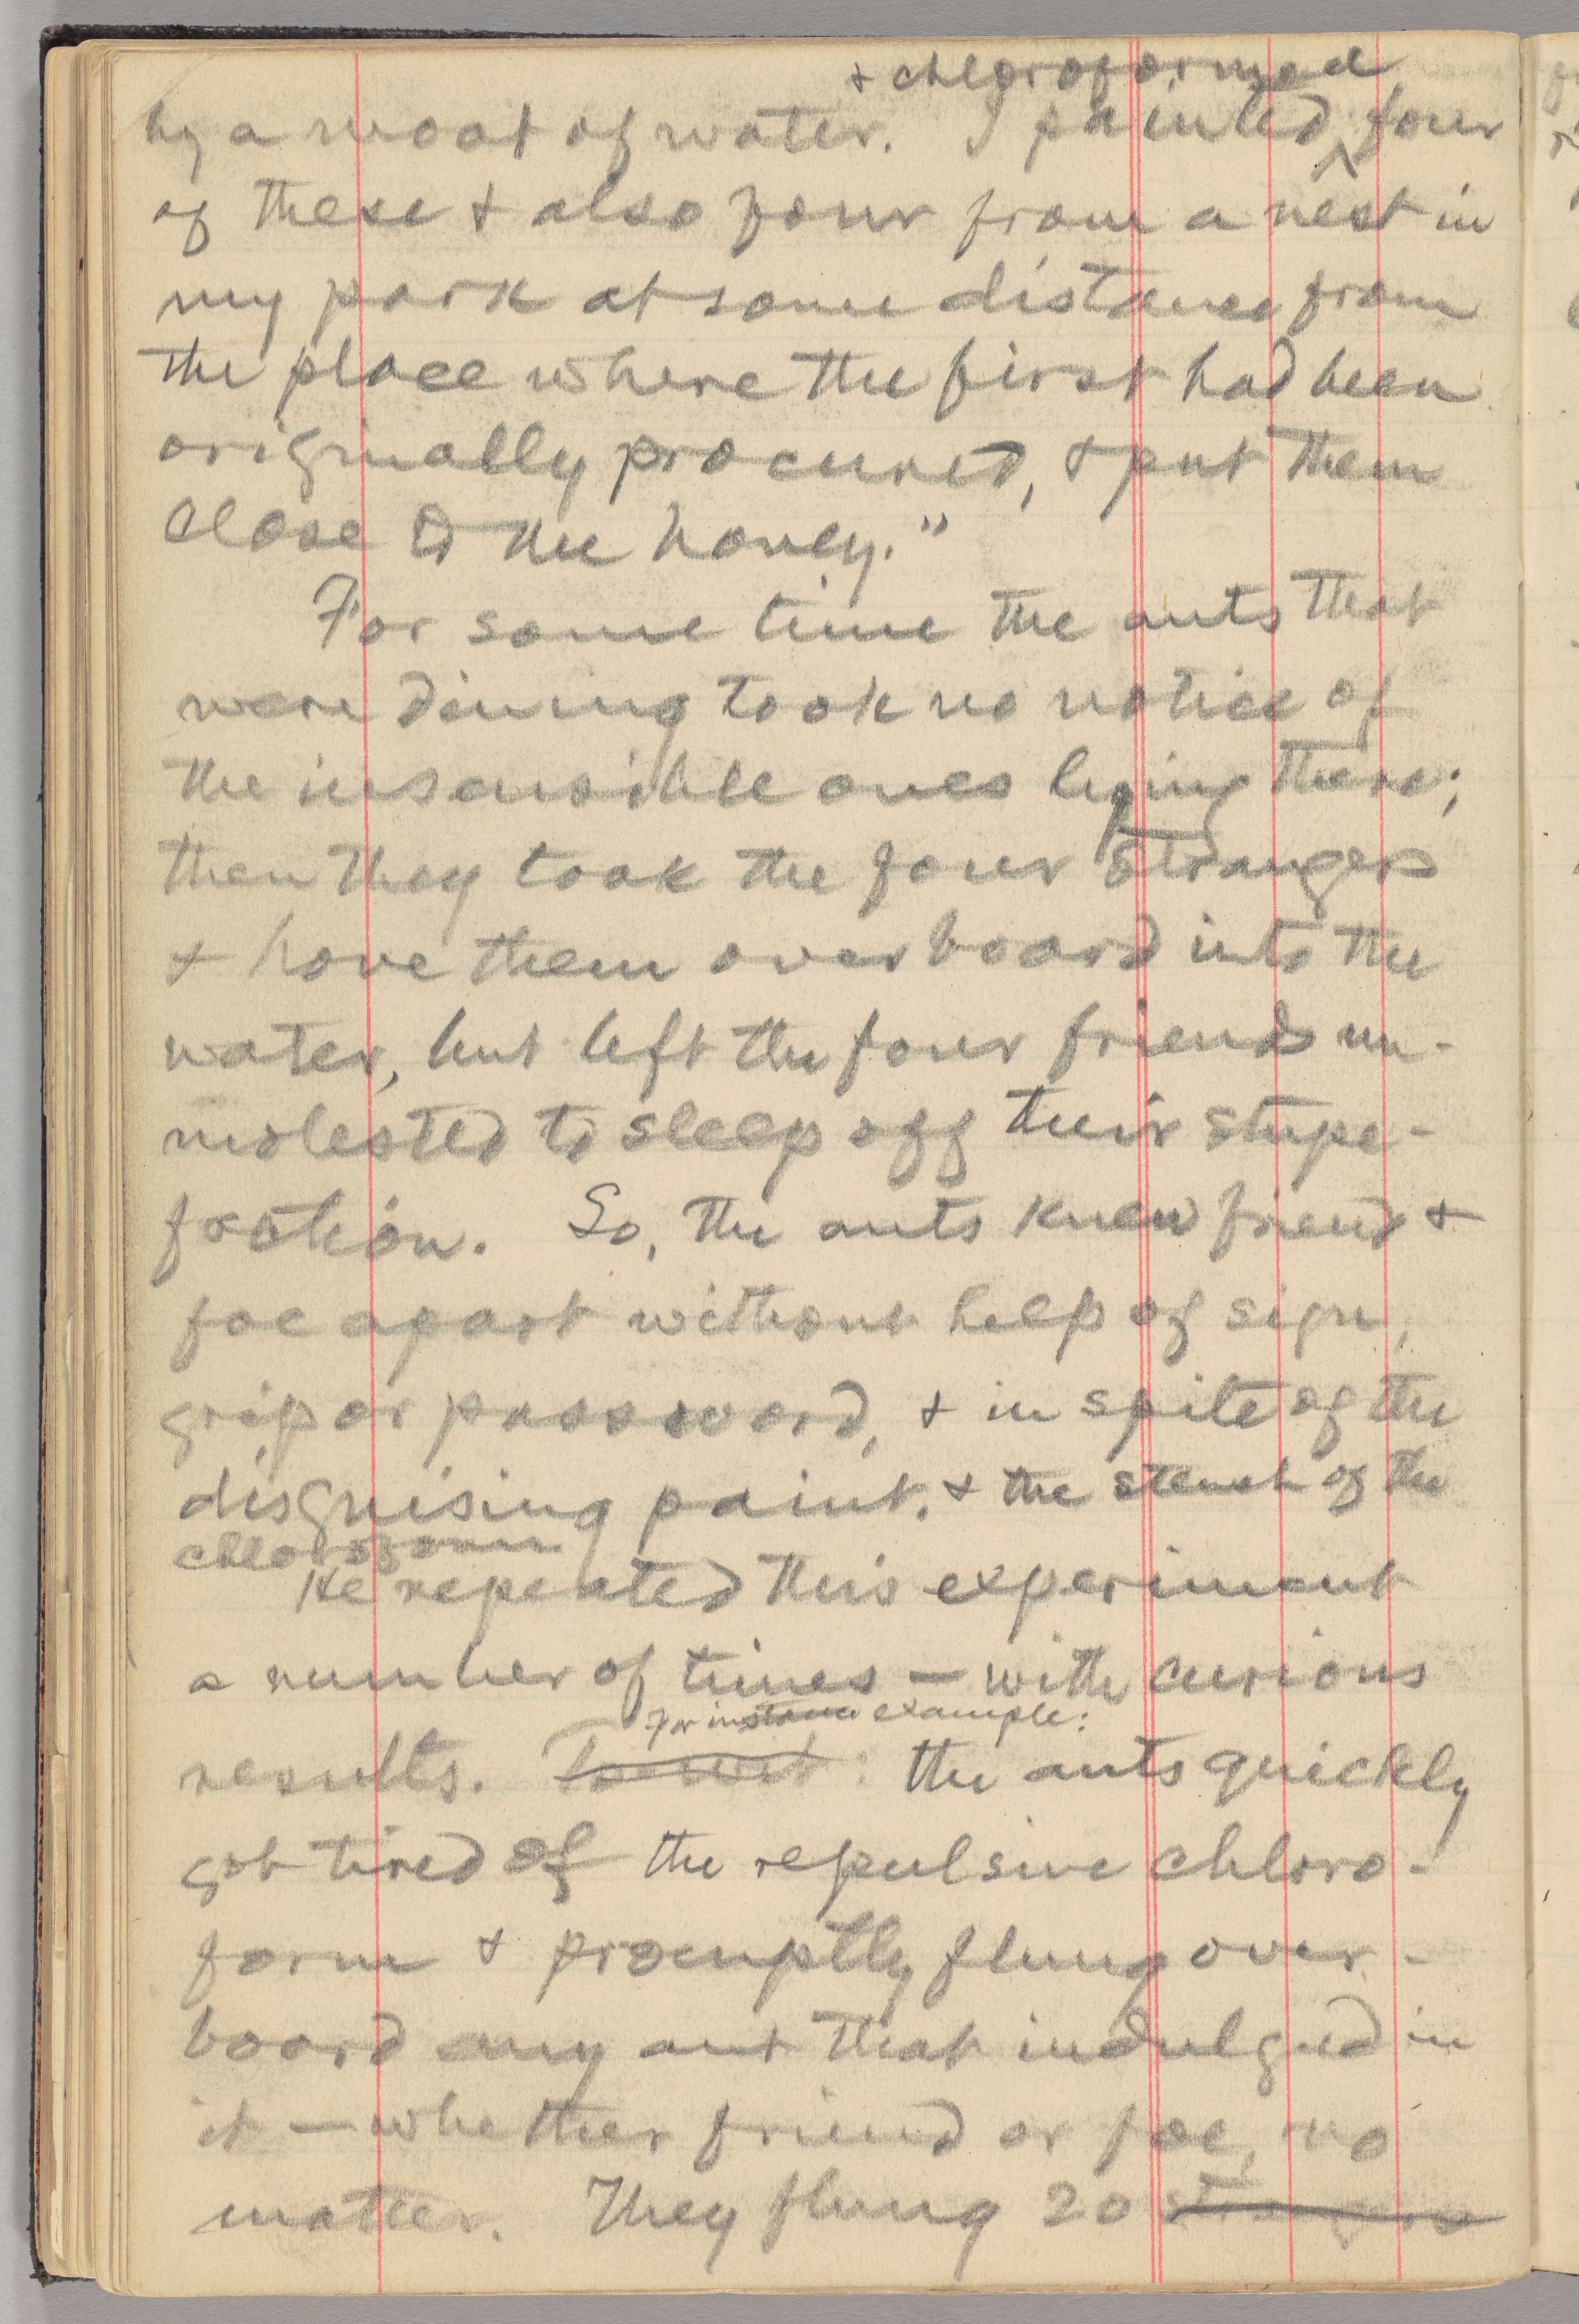 + chloroformed
by a moat of water. I painted ^ four
of these + also four from a nest in
my park at some distance from
the place where the first had been
originally procured, + put them
close to the honey."
For some time the ants that
were dining took no notice of
the insensible ones lying there;
then they took the four strangers
+ hove them overboard into the
water, but left the four friends un-
molested to sleep off their stupe-
faction. So, the ants knew friend +
foe apart without help of sign,
grip or password, + in spite of the
disguising paint. + the stench of the
chloroform
He repeated this experiment
a number of times — with curious
for instance example:
results. To-wit: the ants quickly
got tired of the repulsive chloro-
form + promptly flung over-
board any ant that indulged in
it — whether friend or foe, no
matter. They flung 20 strangers